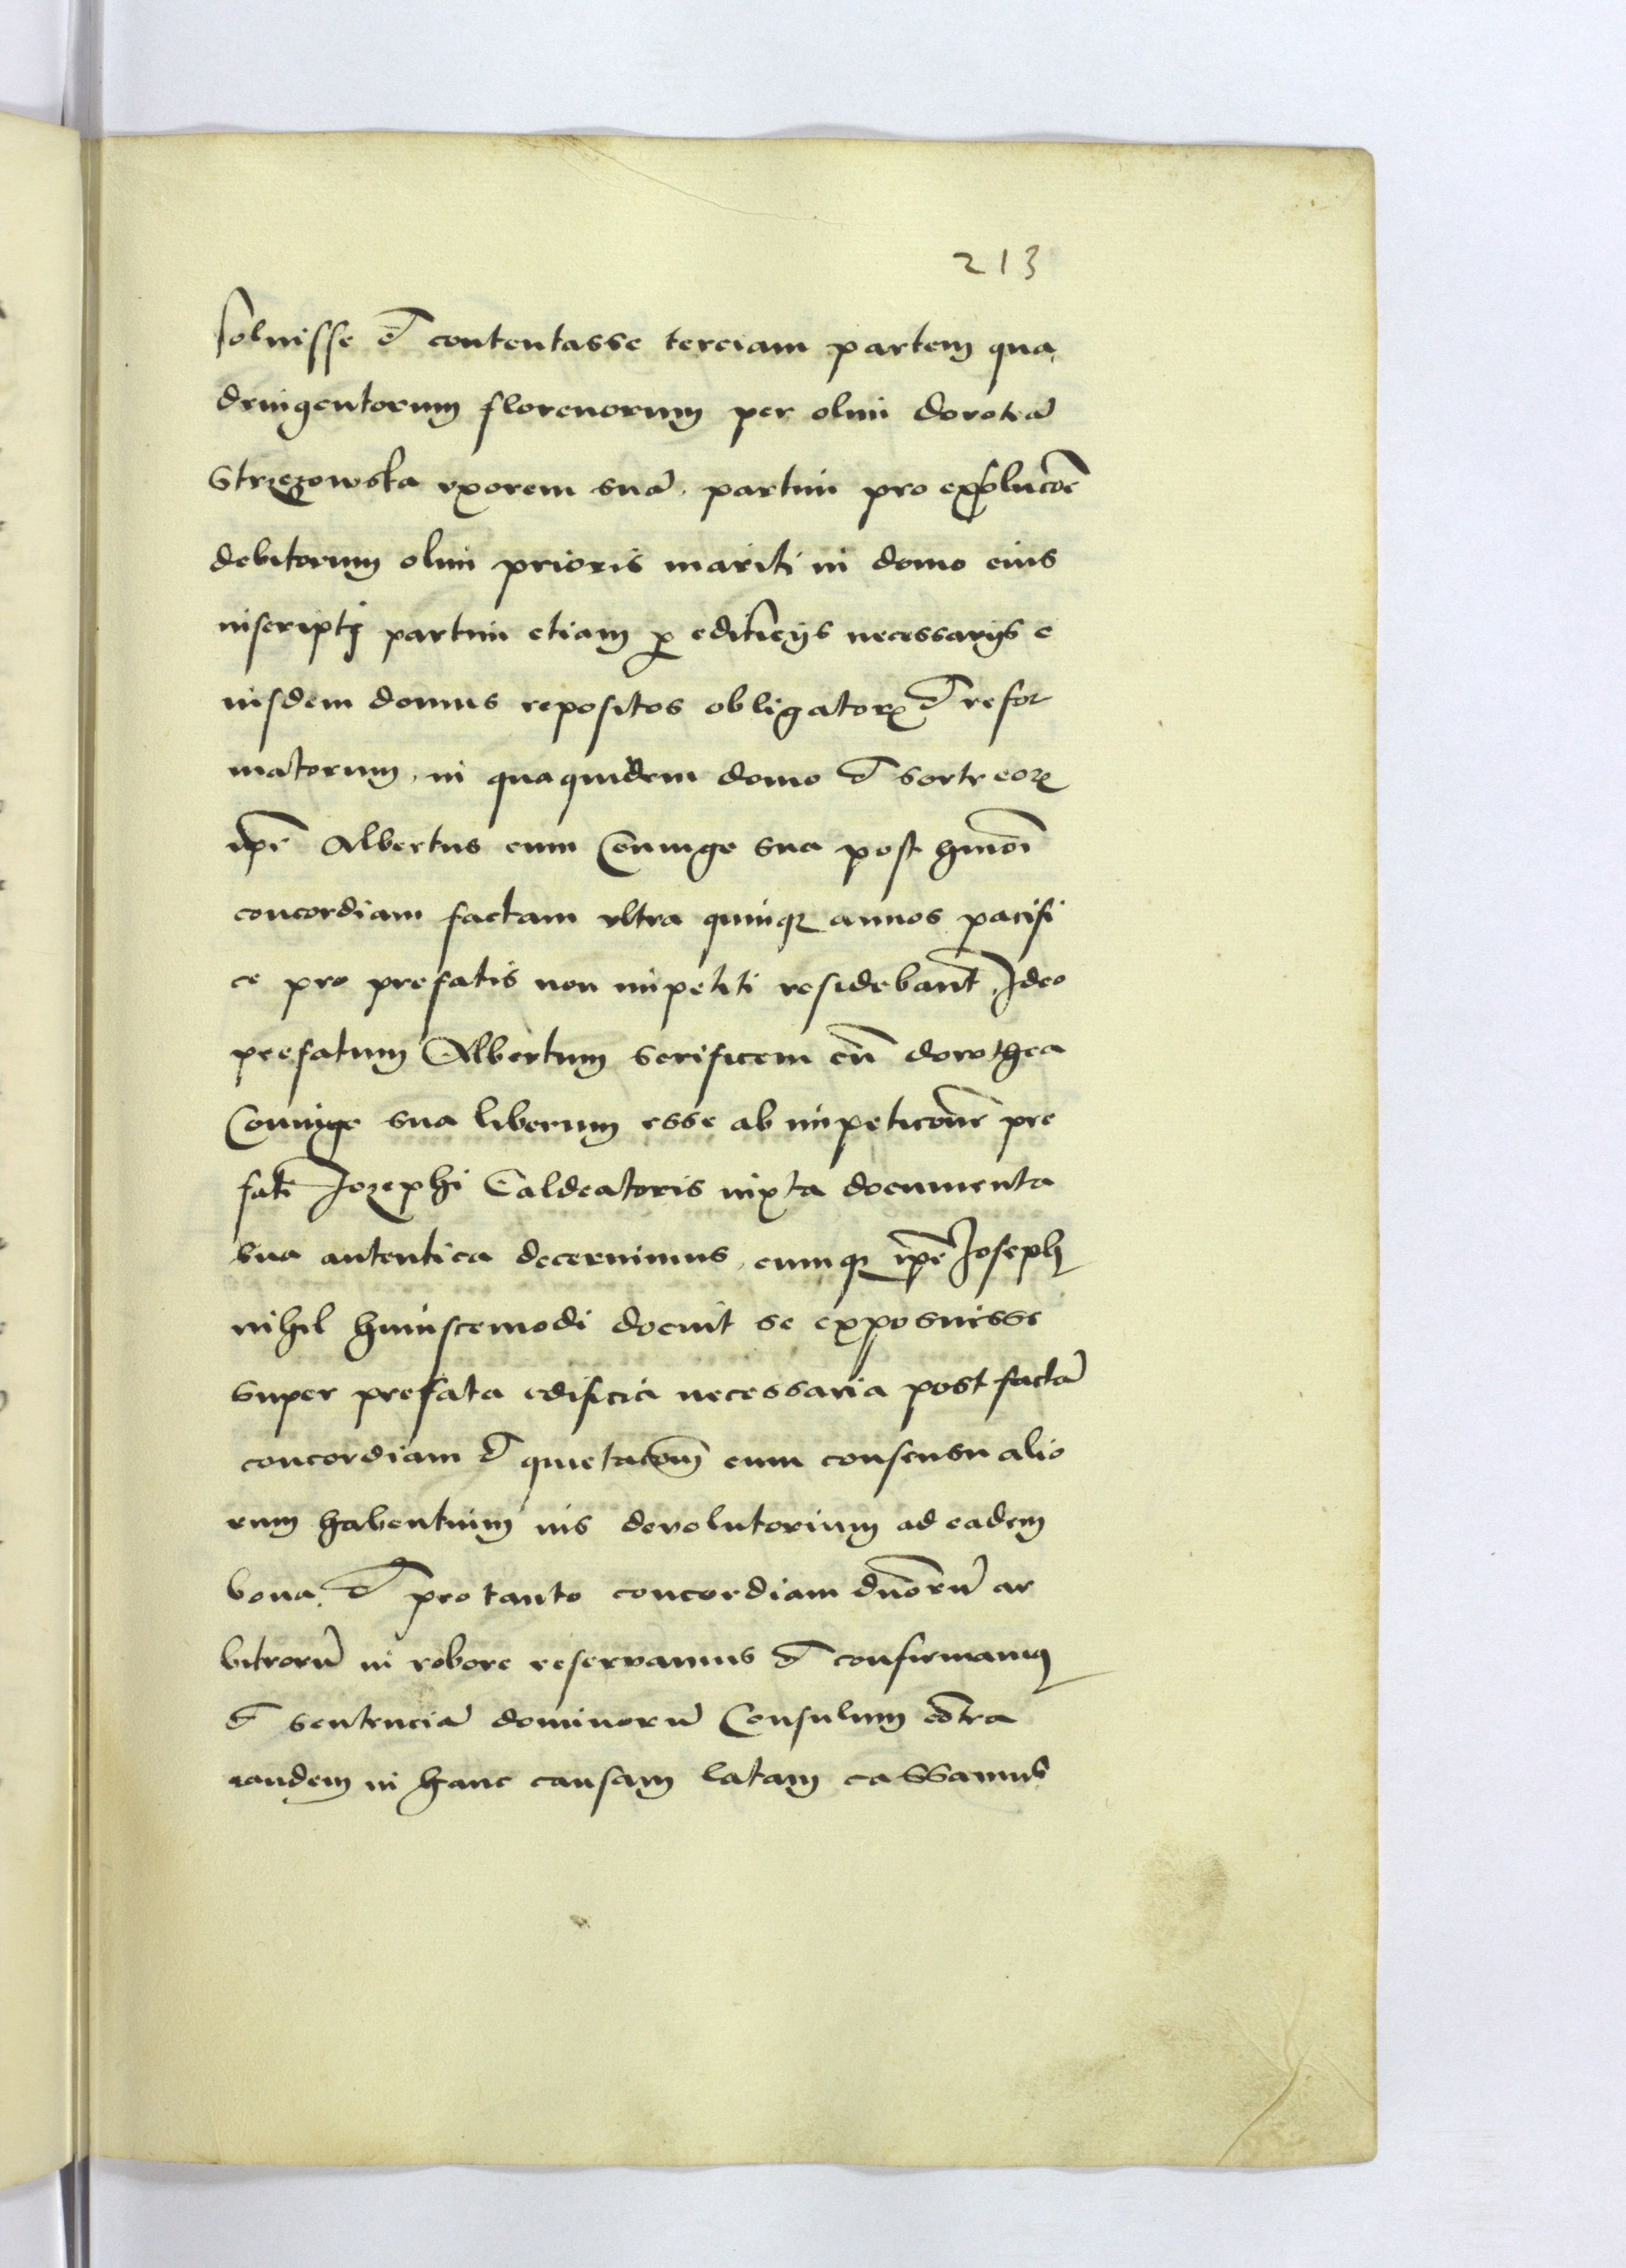 213
soluisse et contentasse terciam partem qua
dringentorum florenorum per olim doroteā
Strzezowska vxorem suā. partim pro exsolucōe
debitorum olim prioris mariti in domo eius
inscriptę partim etiam p edificijs necessarijs e
iusdem domus repositos obligatorꝝ et refor
matorum, in qua quidem domo et sorte eorꝝ
ip̄e Albertus cum Coniuge sua post hmōi
concordiam factam vltra quinqꝫ annos pacifi
ce pro prefatis non impetiti residebant. Ideo
prefatum Albertum serificem cū dorothea
Coniuge sua liberum esse ab impeticōne pre
fati Jozephi Caldeatoris iuxta documenta
sua autentica decernimus, cumqꝫ ip̄e Joseph
nihil huiuscemodi docuit se exposuisse
super prefata edificia necessaria post factā
concordiam et quietacōm̄ cum consensu alio
rum habentium ius deuolutorium ad eadem
bona, et pro tanto concordiam duorū ar
bitrorū in robore reservamus et confirmamꝰ
et sentenciā dominorū Consulum cōtra
eandem in hanc causam latam cassamus